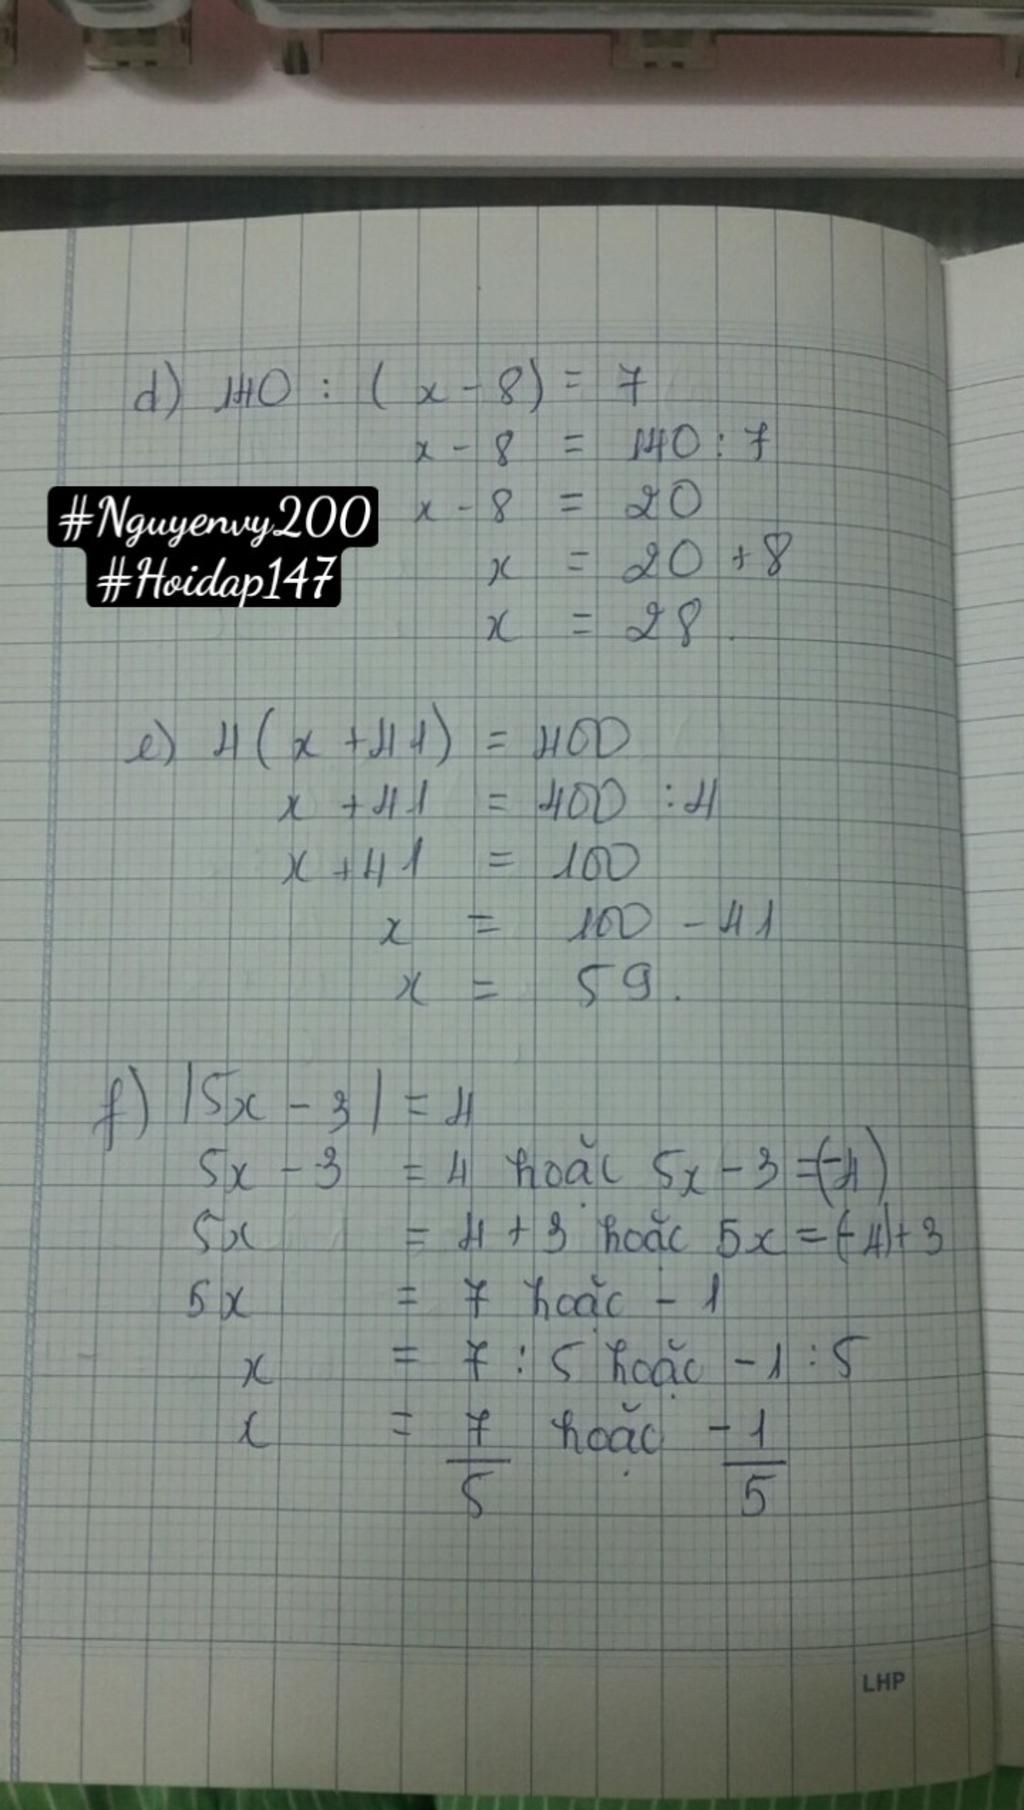 d) 140 : ( x - 8) = 7
x - 8 = 140 : 7
x - 8 = 20
x = 20 + 8
x = 28.
#Nguyenvy200
#Hoidap147
e) 4(x + 41) = 400
x + 41 = 400 : 4
x + 41 = 100
x = 100 - 41
x = 59.
f) |5x - 3| = 4
5x - 3 = 4 hoặc 5x - 3 = (-4)
5x = 4 + 3 hoặc 5x = (-4) + 3
5x = 7 hoặc - 1
x = 7 : 5 hoặc - 1 : 5
x = 7/5 hoặc -1/5
LHP